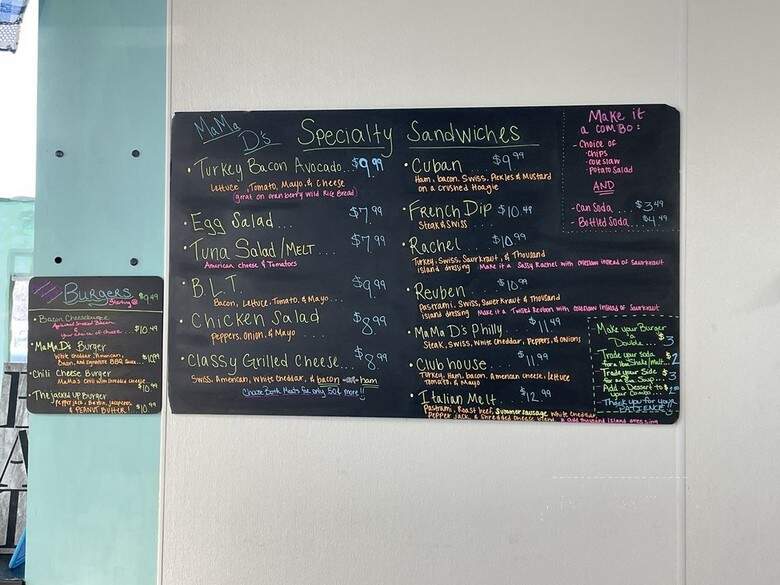 MaMa D's Specialty Sandwiches
Turkey Bacon Avocado... $9.99
Lettuce, Tomato, Mayo, & Cheese
(great on cranberry wild Rice Bread)
Egg Salad... $7.99
Tuna Salad/MELT... $7.99
American cheese & Tomatoes
B.L.T. $9.99
Bacon, Lettuce, Tomato, & Mayo...
Chicken Salad $8.99
Peppers, Onion, & Mayo
Classy Grilled Cheese... $8.99
Swiss, American, White Cheddar, & bacon ham
Choose Both Meats for only 50¢ more!!
Cuban $9.99
Ham, bacon, Swiss, Pickles & Mustard
on a crushed Hoagie
French Dip $10.49
Steak & Swiss
Rachel $10.99
Turkey, Swiss, Saurkraut, & Thousand
island dressing Make it a Sassy Rachel with coleslaw instead of Saurkraut
Reuben $10.99
Pastrami, Swiss, Sauer Kraut & Thousand
island dressing Make it a Twisted Reuben with coleslaw instead of Saurkraut
MaMa D's Philly $11.49
Steak, Swiss, White Cheddar, Peppers, & onions
Club house $11.99
Turkey, Ham, bacon, American cheese, lettuce
Tomato, & Mayo
Italian Melt $12.99
Pastrami, Roast beef, Summer sausage, White Cheddar
Pepper Jack, & Shredded cheese blend & add thousand island dressing
Make it
a combo:
- Choice of
· chips
· coleslaw
· Potato salad
AND
- Can Soda $3.49
- Bottled Soda $4.49
Make your Burger
a
Double $3
Trade your soda
for a Shake/Malt.. $2
Trade your Side $3
for a Soup...
Add a Dessert to
your Combo...
Thank you for your
PATIENCE!!
Burgers Starting @ $9.49
Bacon Cheeseburger
Applewood Smoked Bacon
&
your choice of cheese $10.49
MaMa D's Burger
White cheddar, American,
Bacon, and signature BBQ Sauce... $10.99
Chili Cheese Burger
MaMa's Chili with Shredded cheese
$10.99
The Jacked UP Burger
Pepper jack, Bacon, Jalapenos
& PEANUT BUTTER! $10.99